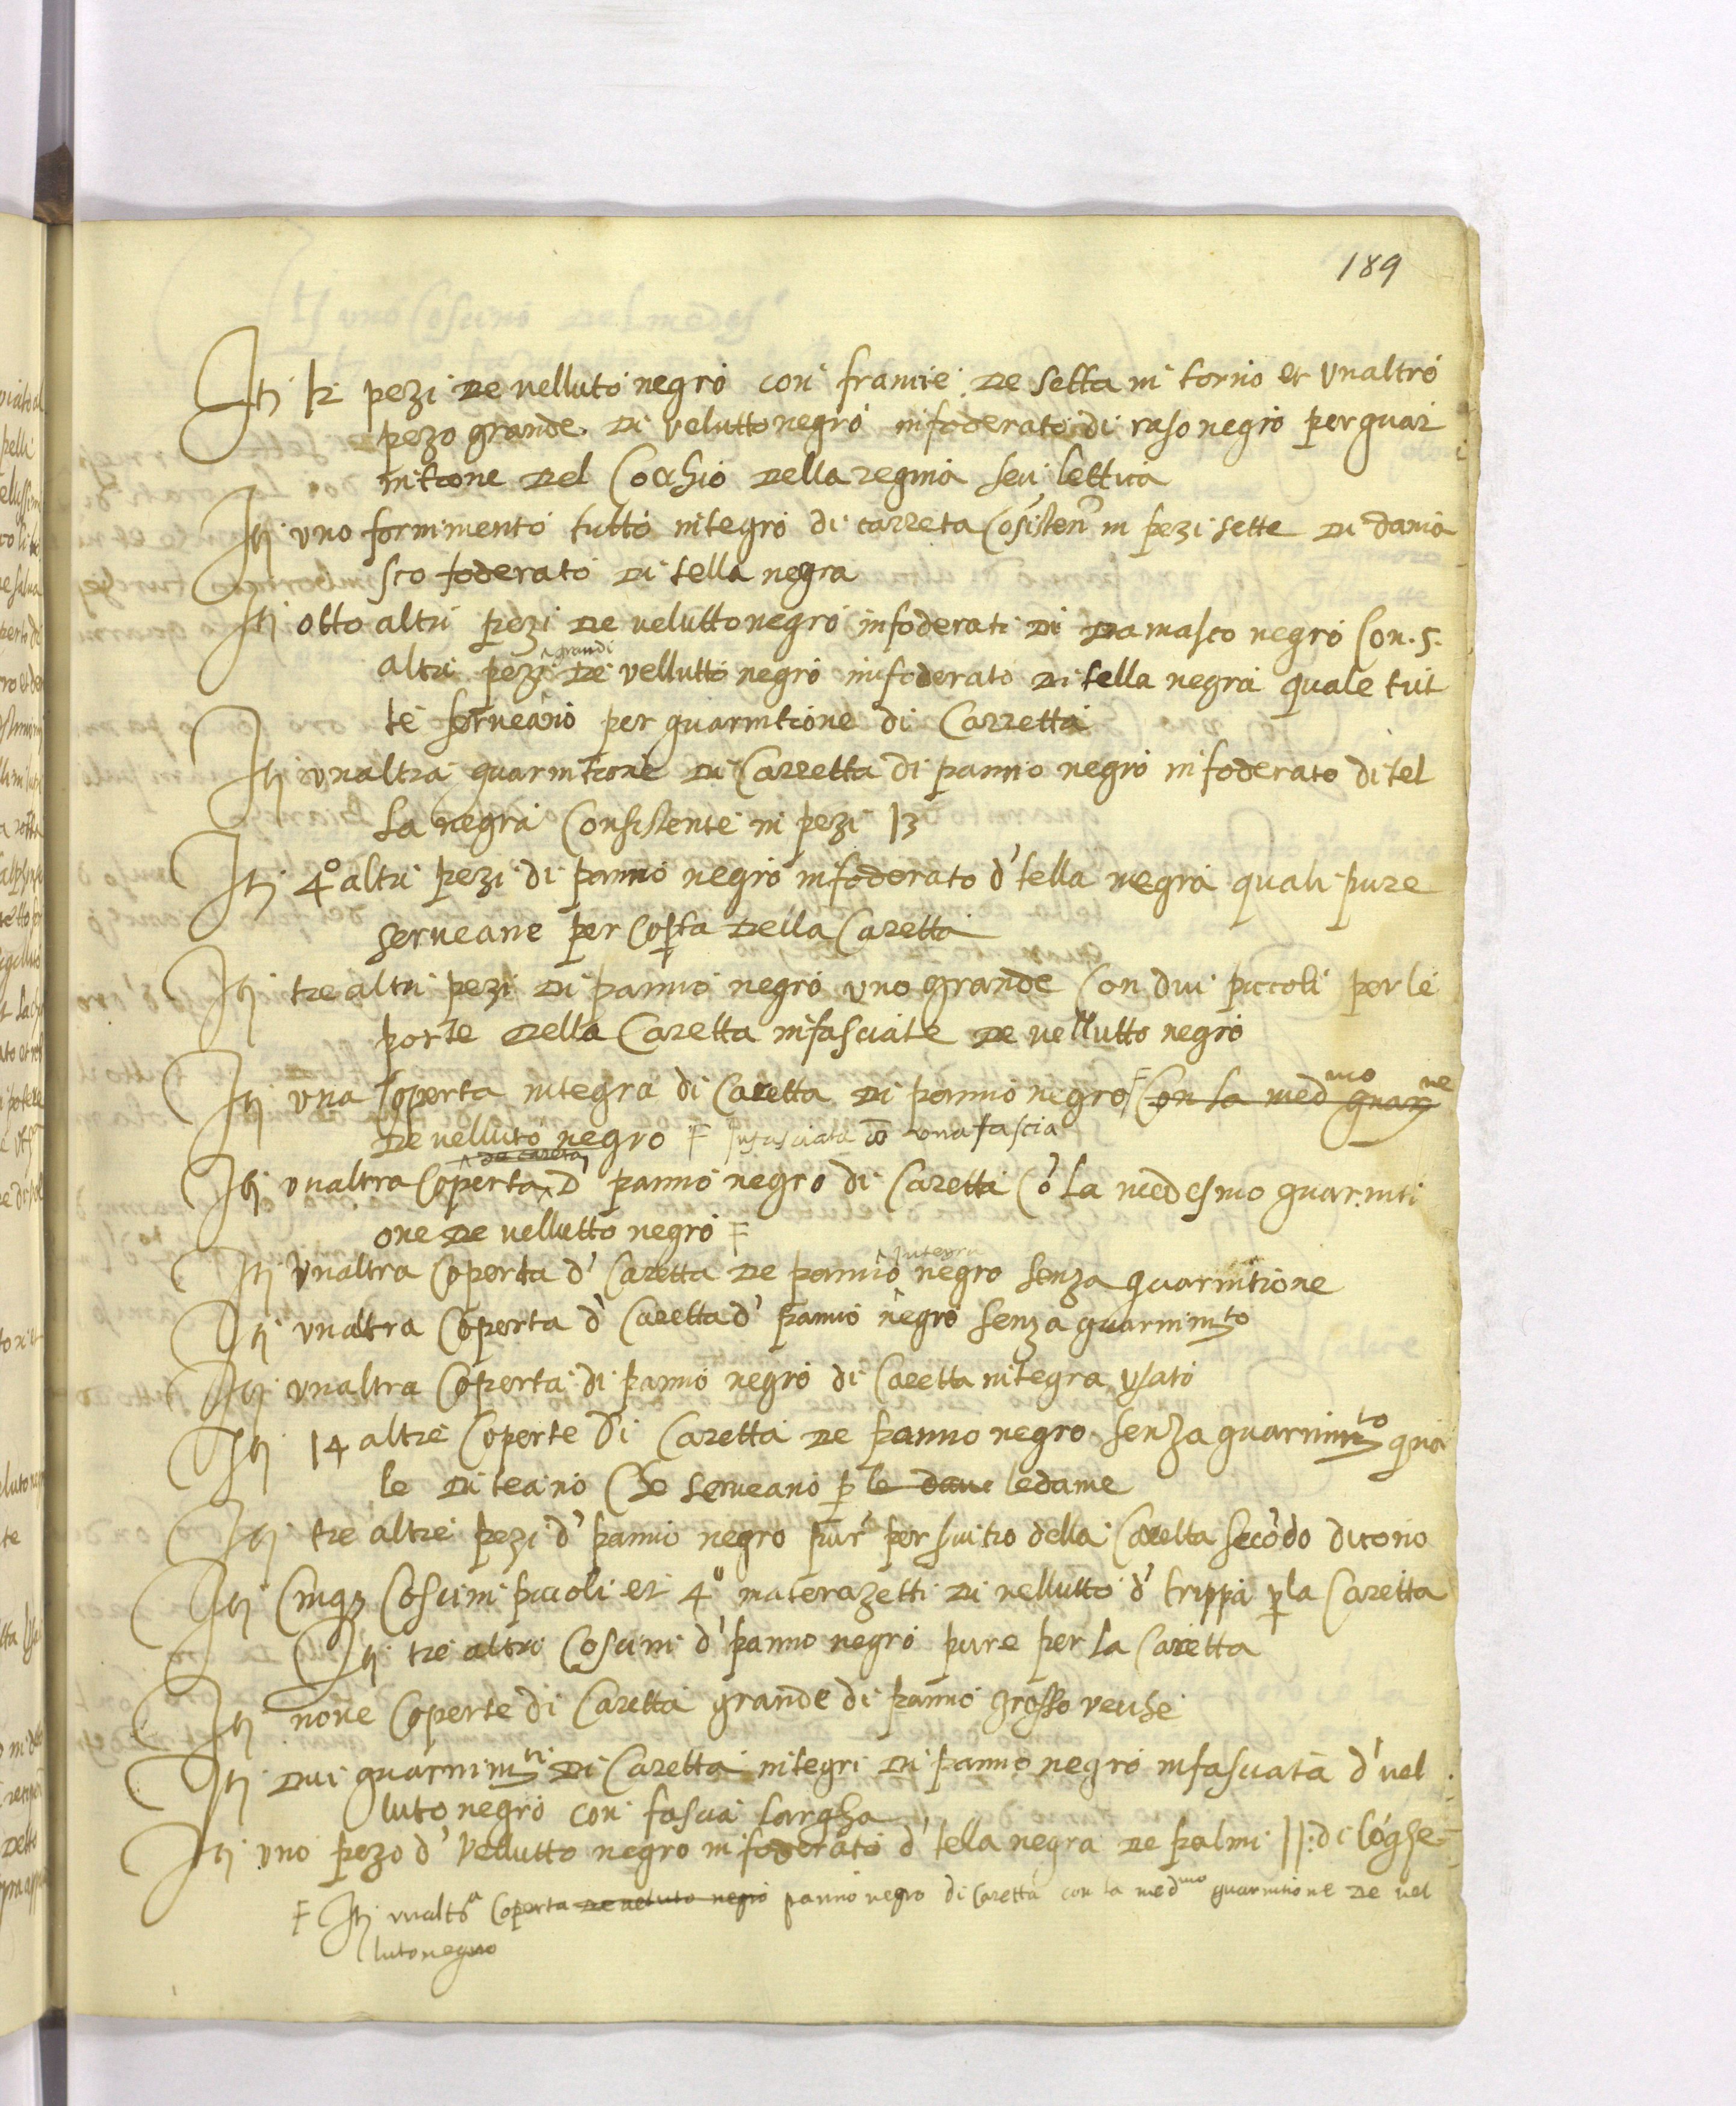 189
Itē 12 pezi de velluto negro con francie de setta in torno et unaltro
pezo grande di velutto negro infoderato di raso negro per guar
nitione del Cocchio della regina seu lettica
Itē uno fornimento tutto integro di carreta Cōsistenᵉ in pezi sette di dama
sco foderato di tella negra
Itē otto altri pezi de velutto negro infoderati di damasco negro Con .5.
altri pezi grandi de vellutto negro infoderato di tella negra quale tut
te serveano per guarnitione di Carretta
Itē unaltra guarnitione di Carretta di panno negro infoderato di tel
la negra Consistente in pezi 13
Itē 4º altri pezi di panno negro infoderato d' tella negra quali pure
serveane per Coperta della Caretta
Itē tre altri pezi di panno negro uno grande Con dui piccoli per le
porte della Caretta infasciate de vellutto negro
Itē una Coperta integra di Caretta di panno negro F Con la medᵐᵒ guarⁿᵉ
de velluto negro F Infasciata cō una fascia
Itē unaltra Coperta de careta d' panno negro di Caretta Cō la medesmo guarniti
one de vellutto negro F
Itē Unaltra Coperta d' Caretta de panno Integra negro senza guarnitione
Itē unaltra Coperta d' Caretta d' panno negro senza guarnimᵗᵒ
Itē unaltra Coperta di panno negro di Caretta integra, usato
Itē 14 altre Coperte di Caretta de panno negro senza guarnimᵗᵒ qua
le diceano Che serveano p le dame ledame
Itē tre altre pezi d' panno negro pur' per svitio della Caretta secōdo dicono
Itē Cinqꝫ Coscini piccoli et 4º materazetti di vellutto d' trippa p la Caretta
Itē tre altri Coscini d' panno negro pure per la Caretta
Itē nove Coperte di Caretta grande di panno grosso vechie
Itē dui guarnimᵗⁱ di Caretta integri di panno negro infasciata d' vel
luto negro con fascia largha
Itē uno pezo d' Vellutto negro infoderato d' tella negra de palmi 11: de lōghe
F Itē unaltʳᵃ Coperta de veluto negro panno negro di Caretta con la medᵐᵒ guarnitione de vel
luto negro